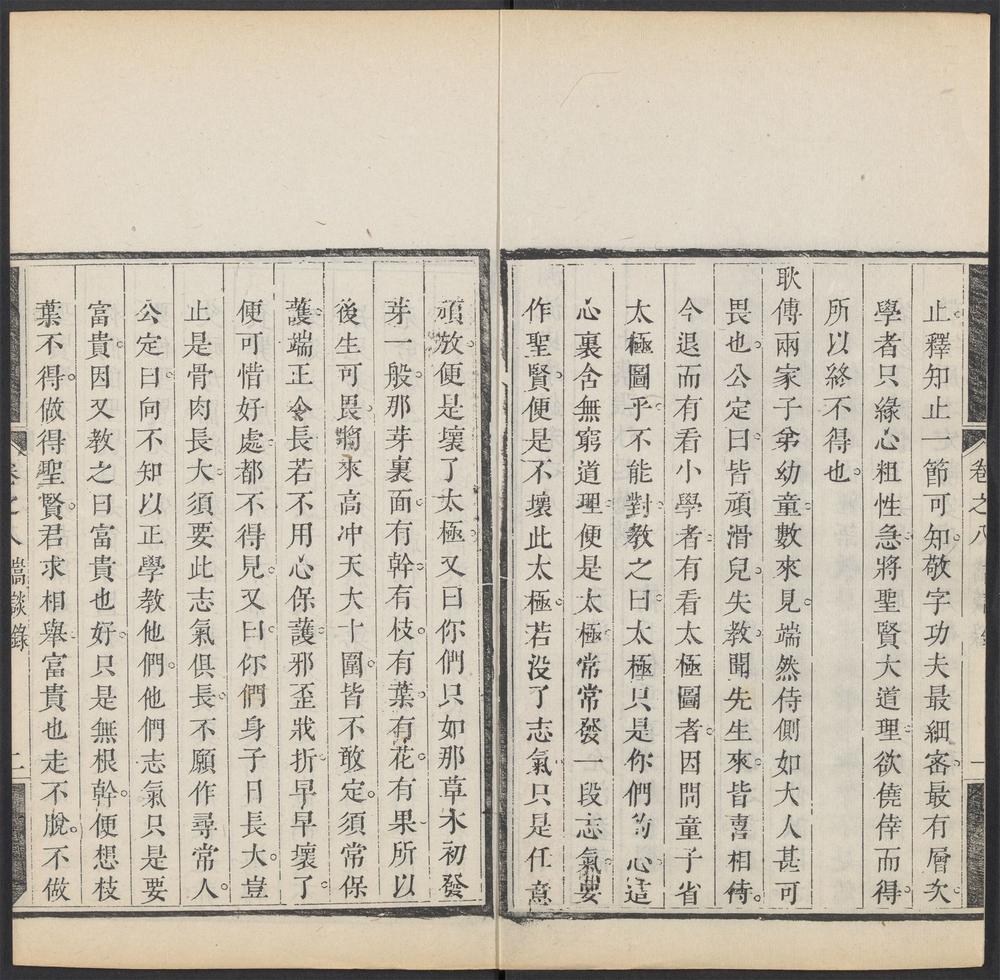 卷之八
一
止釋知止一節可知敬字功夫最細密最有層次
學者只緣心粗性急將聖賢大道理欲僥倖而得
所以終不得也
耿傳兩家子弟幼童數來見端然侍側如大人甚可
畏也公定曰皆頑滑兒失教聞先生來皆喜相待
今退而有看小學者有看太極圖者因問童子省
太極圖乎不能對教之曰太極只是你們的心這
心裏含無窮道理便是太極常常發一段志氣要
作聖賢便是不壞此太極若没了志氣只是任意
頑放便是壞了太極又曰你們只如那草木初發
芽一般那芽裏面有幹有枝有葉有花有果所以
後生可畏將來高冲天大十圍皆不敢定須常保
護端正令長若不用心保護邪歪戕折早早壞了
便可惜好處都不得見又曰你們身子日長大豈
止是骨肉長大須要此志氣俱長不願作尋常人
公定曰向不知以正學教他們他們志氣只是要
富貴因又教之曰富貴也好只是無根幹便想枝
葉不得做得聖賢君求相舉富貴也走不脫不做
卷之八 談錄
二